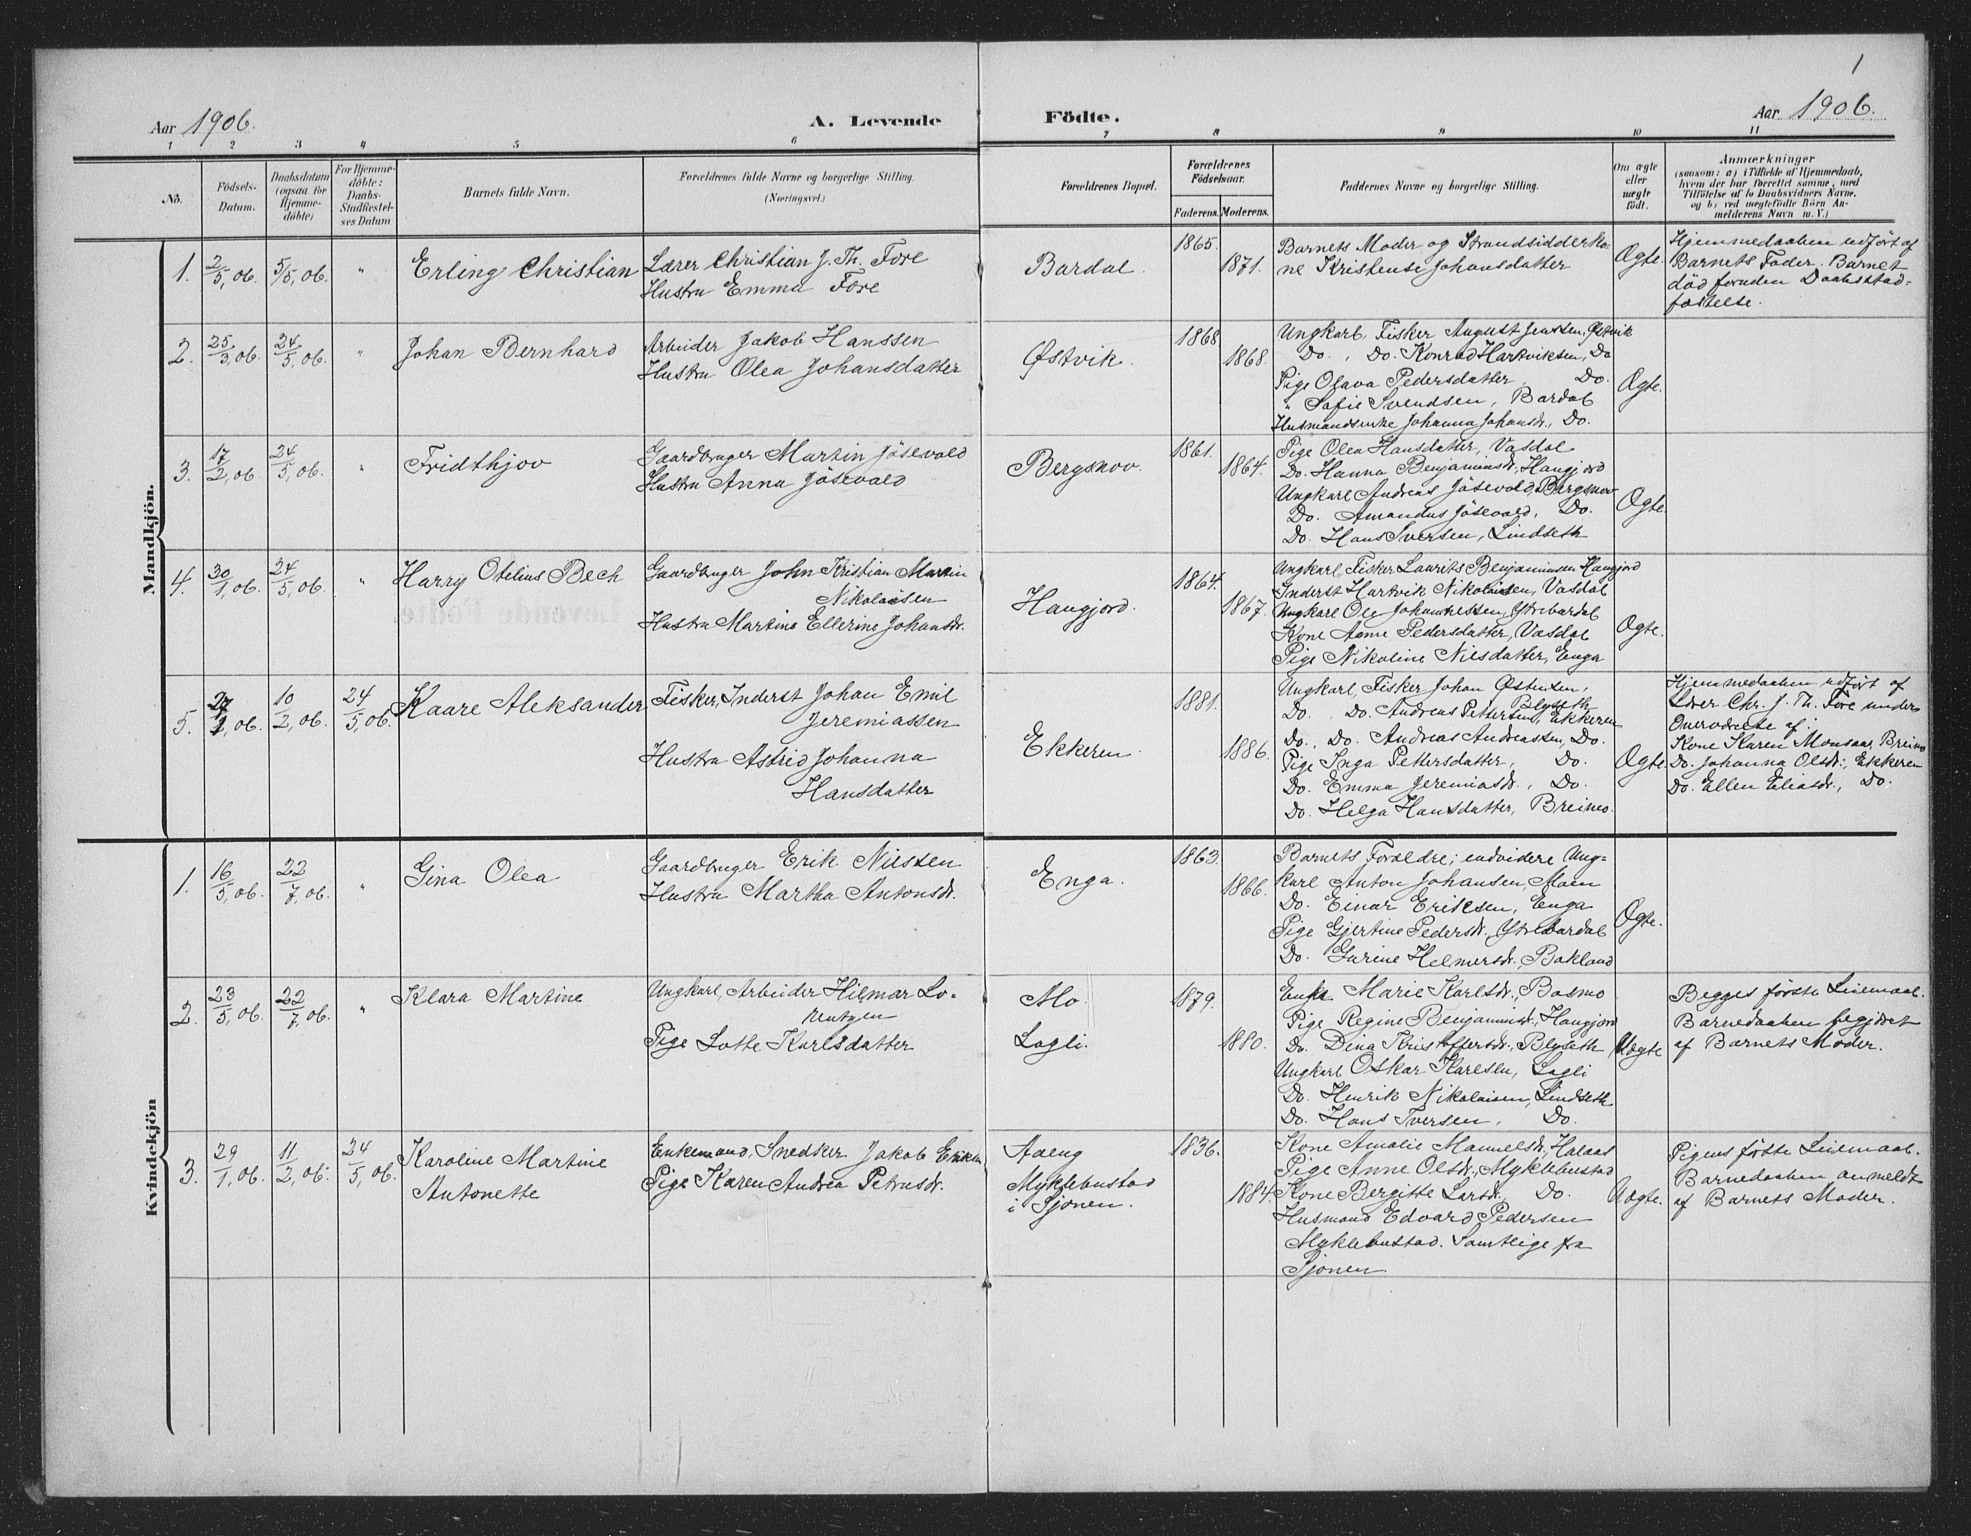 1
Aar 1906.
A. Levende Födte.
Aar 1906.
1 2 3 4 5 6 7 8 9 10 11
No.
Födsels-
Datum.
Daabsdatum
(ogsaa för
Hjemme-
döbte)
For Hjemme-
döbte:
Daabs-
Stadfæstel-
ses Datum
Barnets fulde Navn.
Forældrenes fulde Navne og borgerlige Stilling.
(Næringsvei.)
Forældrenes Bopæl.
Forældrenes
Födselsaar.
Faderens. Moderens.
Faddernes Navne og borgerlige Stilling.
Om ægte
eller
uægte
født.
Anmærkninger
(saasom: a) i Tilfælde af Hjemmedaab,
hvem der har forrettet samme, med
Tilföielse af to Daabsvidners Navne,
og b) ved uægtefödte Börn An-
melderens Navn m. V.)
Mandkjön.
1. 2/5, 06. 5/5, 06. "
Erling Christian
Lærer Christian J. Th. Føre
Hustru Emma Føre
Bardal.
1865.
1871.
Barnets Moder og Strandsidderko
ne Kristense Johansdatter
Ægte.
Hjemmedaaben udført af
Barnets Fader. Barnet
död foruden Daabsstad-
fæstelse.
2. 25/3, 06. 24/5, 06. "
Johan Bernhard
Arbeider Jakob Hanssen
Hustru Olea Johansdatter
Østvik.
1868
1868.
Ungkarl, Fisker August Jenssen, Østvik
Do., Do. Konrad Hartviksen, Do
Pige Olava Pedersdatter, Do.
" Sofie Svendsen, Bardal
Husmandsenke Johanna Johansdr., Do.
Ægte.
3. 17/2, 06. 24/5, 06. "
Fridthjov
Gaardbruger Martin Jösevold
Hustru Anna Jösevold
Bergsnov
1861.
1864.
Pige Olea Hansdatter, Vasdal
Do. Hanna Benjaminsdr., Haugjord
Ungkarl Andreas Jösevold, Bergsnov
Do. Amandus Jösevold, Do.
Do. Hans Iversen, Lindseth
Ægte.
4. 30/1, 06. 24/5, 06. "
Harry Otelius Bech
Gaardbruger John Kristian Martin
Nikolaisen
Hustru Martine Ellerine Johansdr.
Haugjord.
1864.
1867.
Ungkarl, Fisker Laurits Benjaminsen Haugjord
Inderst Hartvik Nikolaisen, Vasdal
Ungkarl Ole Johannessen, Ytrebardal
Kone Anne Pedersdatter, Vasdal
Pige Nikoline Nilsdatter, Enga
Ægte.
5. 27/1, 06. 10/2, 06. 24/5, 06.
Kaare Aleksander
Fisker, Inderst Johan Emil
Jeremiassen
Hustru Astrid Johanna
Hansdatter
Ekkeren.
1881.
1886.
Ungkarl, Fisker Johan Østensen,
Blyseth
Do. Do. Andreas Pettersen, Ekkeren
Do., Do. Andreas Andreassen, Do.
Pige Inga Pettersdatter, Do.
Do. Emma Jeremiasdr., Do.
Do. Helga Hansdatter, Breimo.
Ægte
Hjemmedaaben udført af
Lærer Chr. J. Th. Føre under
Overværelse af
Kone Karen Monsdr., Breimo
Do. Johanna Olsdr., Ekkeren
Do. Ellen Eliasdr., Do.
Kvindekjön
1. 16/5, 06. 22/7, 06. "
Gina Olea
Gaardbruger Erik Nilssen
Hustru Martha Antonsdr.
Enga.
1863.
1866.
Barnets Forældre; endvidere Ung-
karl Anton Johansen, Moen
Do. Einar Eriksen, Enga
Pige Gjertine Pedersdr., Ytrebardal
Do. Gurine Helmersdr., Bakland
Ægte.
2. 23/5, 06. 22/7, 06. "
Klara Martine
Ungkarl, Arbeider Hilmar Lo-
rentzen
Pige Lotte Karlsdatter
Mo.
Lagli.
1879.
1880.
Enke Marie Karlsdr., Basmo
Pige Regine Benjaminsdr., Haugjord
Do. Dina Kristoffersdr., Blyseth
Ungkarl Oskar Karlsen, Lagli
Do. Henrik Nikolaisen, Lindseth
Do. Hans Iversen, Do.
Uægte
Begges første Leiemaal.
Barnedaaben begjæret
af Barnets Moder.
3. 29/1, 06. 11/2, 06. 24/5, 06.
Karoline Martine
Antonette
Enkemand, Snedker Jakob Eriksen
Pige Karen Andrea Petrusdr.
Aaeng
Myklebustad
i Sjonen.
1836.
1884.
Kone Amalie Manuelsdr., Halaas
Pige Anne Olsdr., Myklebustad
Kone Bergitte Larsdr., Do.
Husmand Edvard Pedersen
Myklebustad. Samtlige fra
Sjonen.
Uægte.
Pigens første Leiemaal.
Barnedaaben anmeldt
af Barnets Moder.